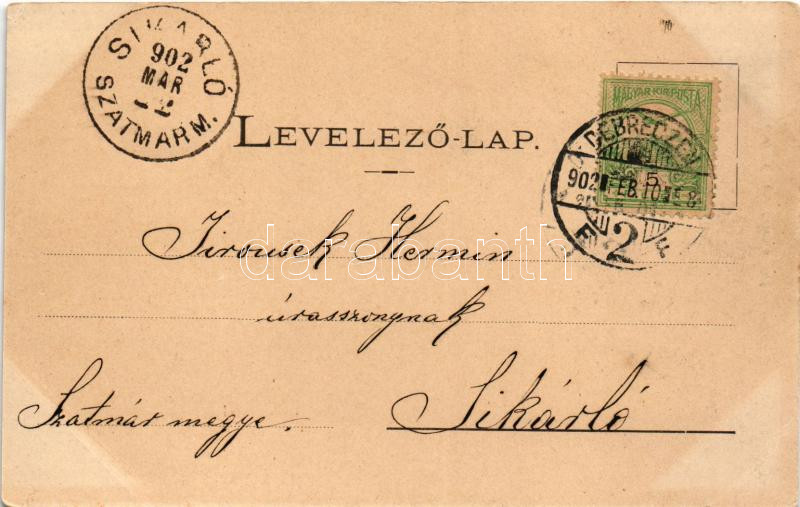 SIKARLÓ
902
MAR
SZATMARM.
LEVELEZŐ-LAP.
MAGYAR KIR. POSTA
5
DEBRECZEN
902 FEB.10
2
Jirousek Hermin
úrasszonynak
Szatmár megye.
Sikárló
darabanth